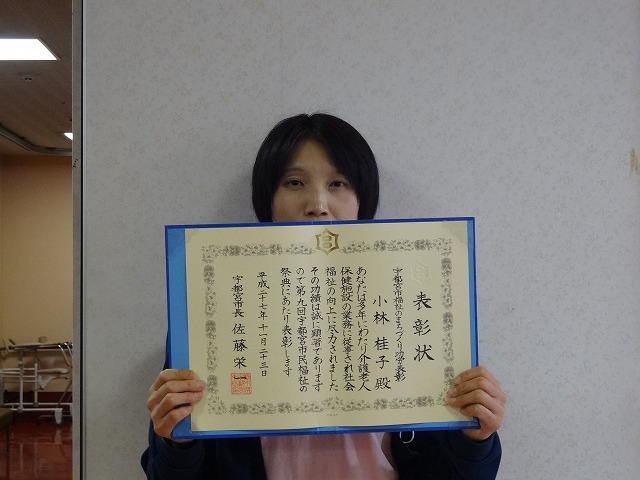 表彰状
宇都宮市福祉のまちづくり功労表彰
小林桂子殿
あなたは多年にわたり介護老人
保健施設の業務に従事され社会
福祉の向上に尽力されました
その功績は誠に顕著であります
ので第九回宇都宮市民福祉の
祭典にあたり表彰します
平成二十七年十一月二十三日
宇都宮市長 佐藤栄一